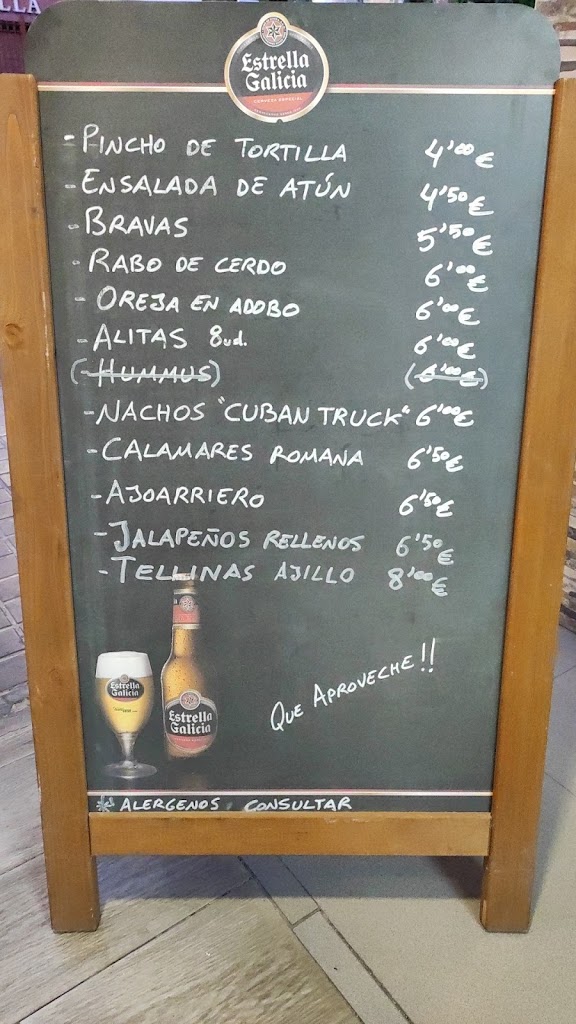 LLA
Estrella
Galicia
CERVEZA ESPECIAL
- PINCHO DE TORTILLA 4'00 €
- ENSALADA DE ATÚN 4'50 €
- BRAVAS 5'50 €
- RABO DE CERDO 6'00 €
- OREJA EN ADOBO 6'00 €
- ALITAS 8ud. 6'00 €
(- HUMMUS) (6'00 €)
- NACHOS "CUBAN TRUCK" 6'00 €
- CALAMARES ROMANA 6'50 €
- AJOARRIERO 6'50 €
- JALAPEÑOS RELLENOS 6'50 €
- TELLINAS AJILLO 8'00 €
QUE APROVECHE!!
Estrella
Galicia
Estrella
Galicia
* ALERGENOS, CONSULTAR